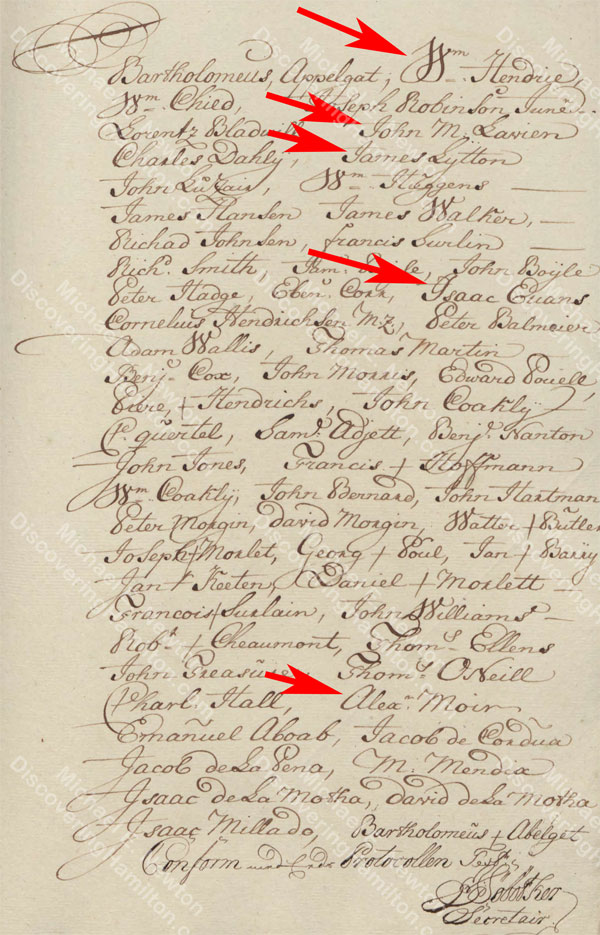 Wm Hendrie,
Bartholomeus, Appelgat,
Wm Chied, Joseph Robinson, Junr
Lorentz John M. Lavien
Charles Dahly, James Lytton
John Luzair, Wm Huggens
James Hansen James Walker,
Richad Johnsen, francis Surlin
Richd. Smith, John Boyle
Peter Hadge, Ebenr. Isaac Evans
Cornelius Hendrichsen Mz, Peter Balmeier
Adam Wallis, Thomas Martin
Benj. Cox, John Morris, Edward Pouell,
+ Hendrichs, John Coakly
P. quertel, Saml. Adjett, Benj. Nanton
John Jones, Francis + Hoffmann
Wm Coakly, John Bernard, John Hartman
Peter Morgin, david Morgin, Watter + Butler
Joseph + Morlet, Georg + Poul, Jan + Barry
Jan + Keeten, Daniel + Morlett
Francois + Surlain, John Williams
Robt + Cheaumont, Thoms. Ellens
John Treasure Thoms. ONeill
Pharl Hall, Alexr. Moir
Emanuel Aboab, Jacob de Cordua
Jacob de La Pena, M. Mendix
Isaac de La Motha, david de La Motha
Isaac Millado, Bartholomeus + Abelget
Conform Protocollen
Secretair.
Michael Newton
DiscoveringHamilton.com